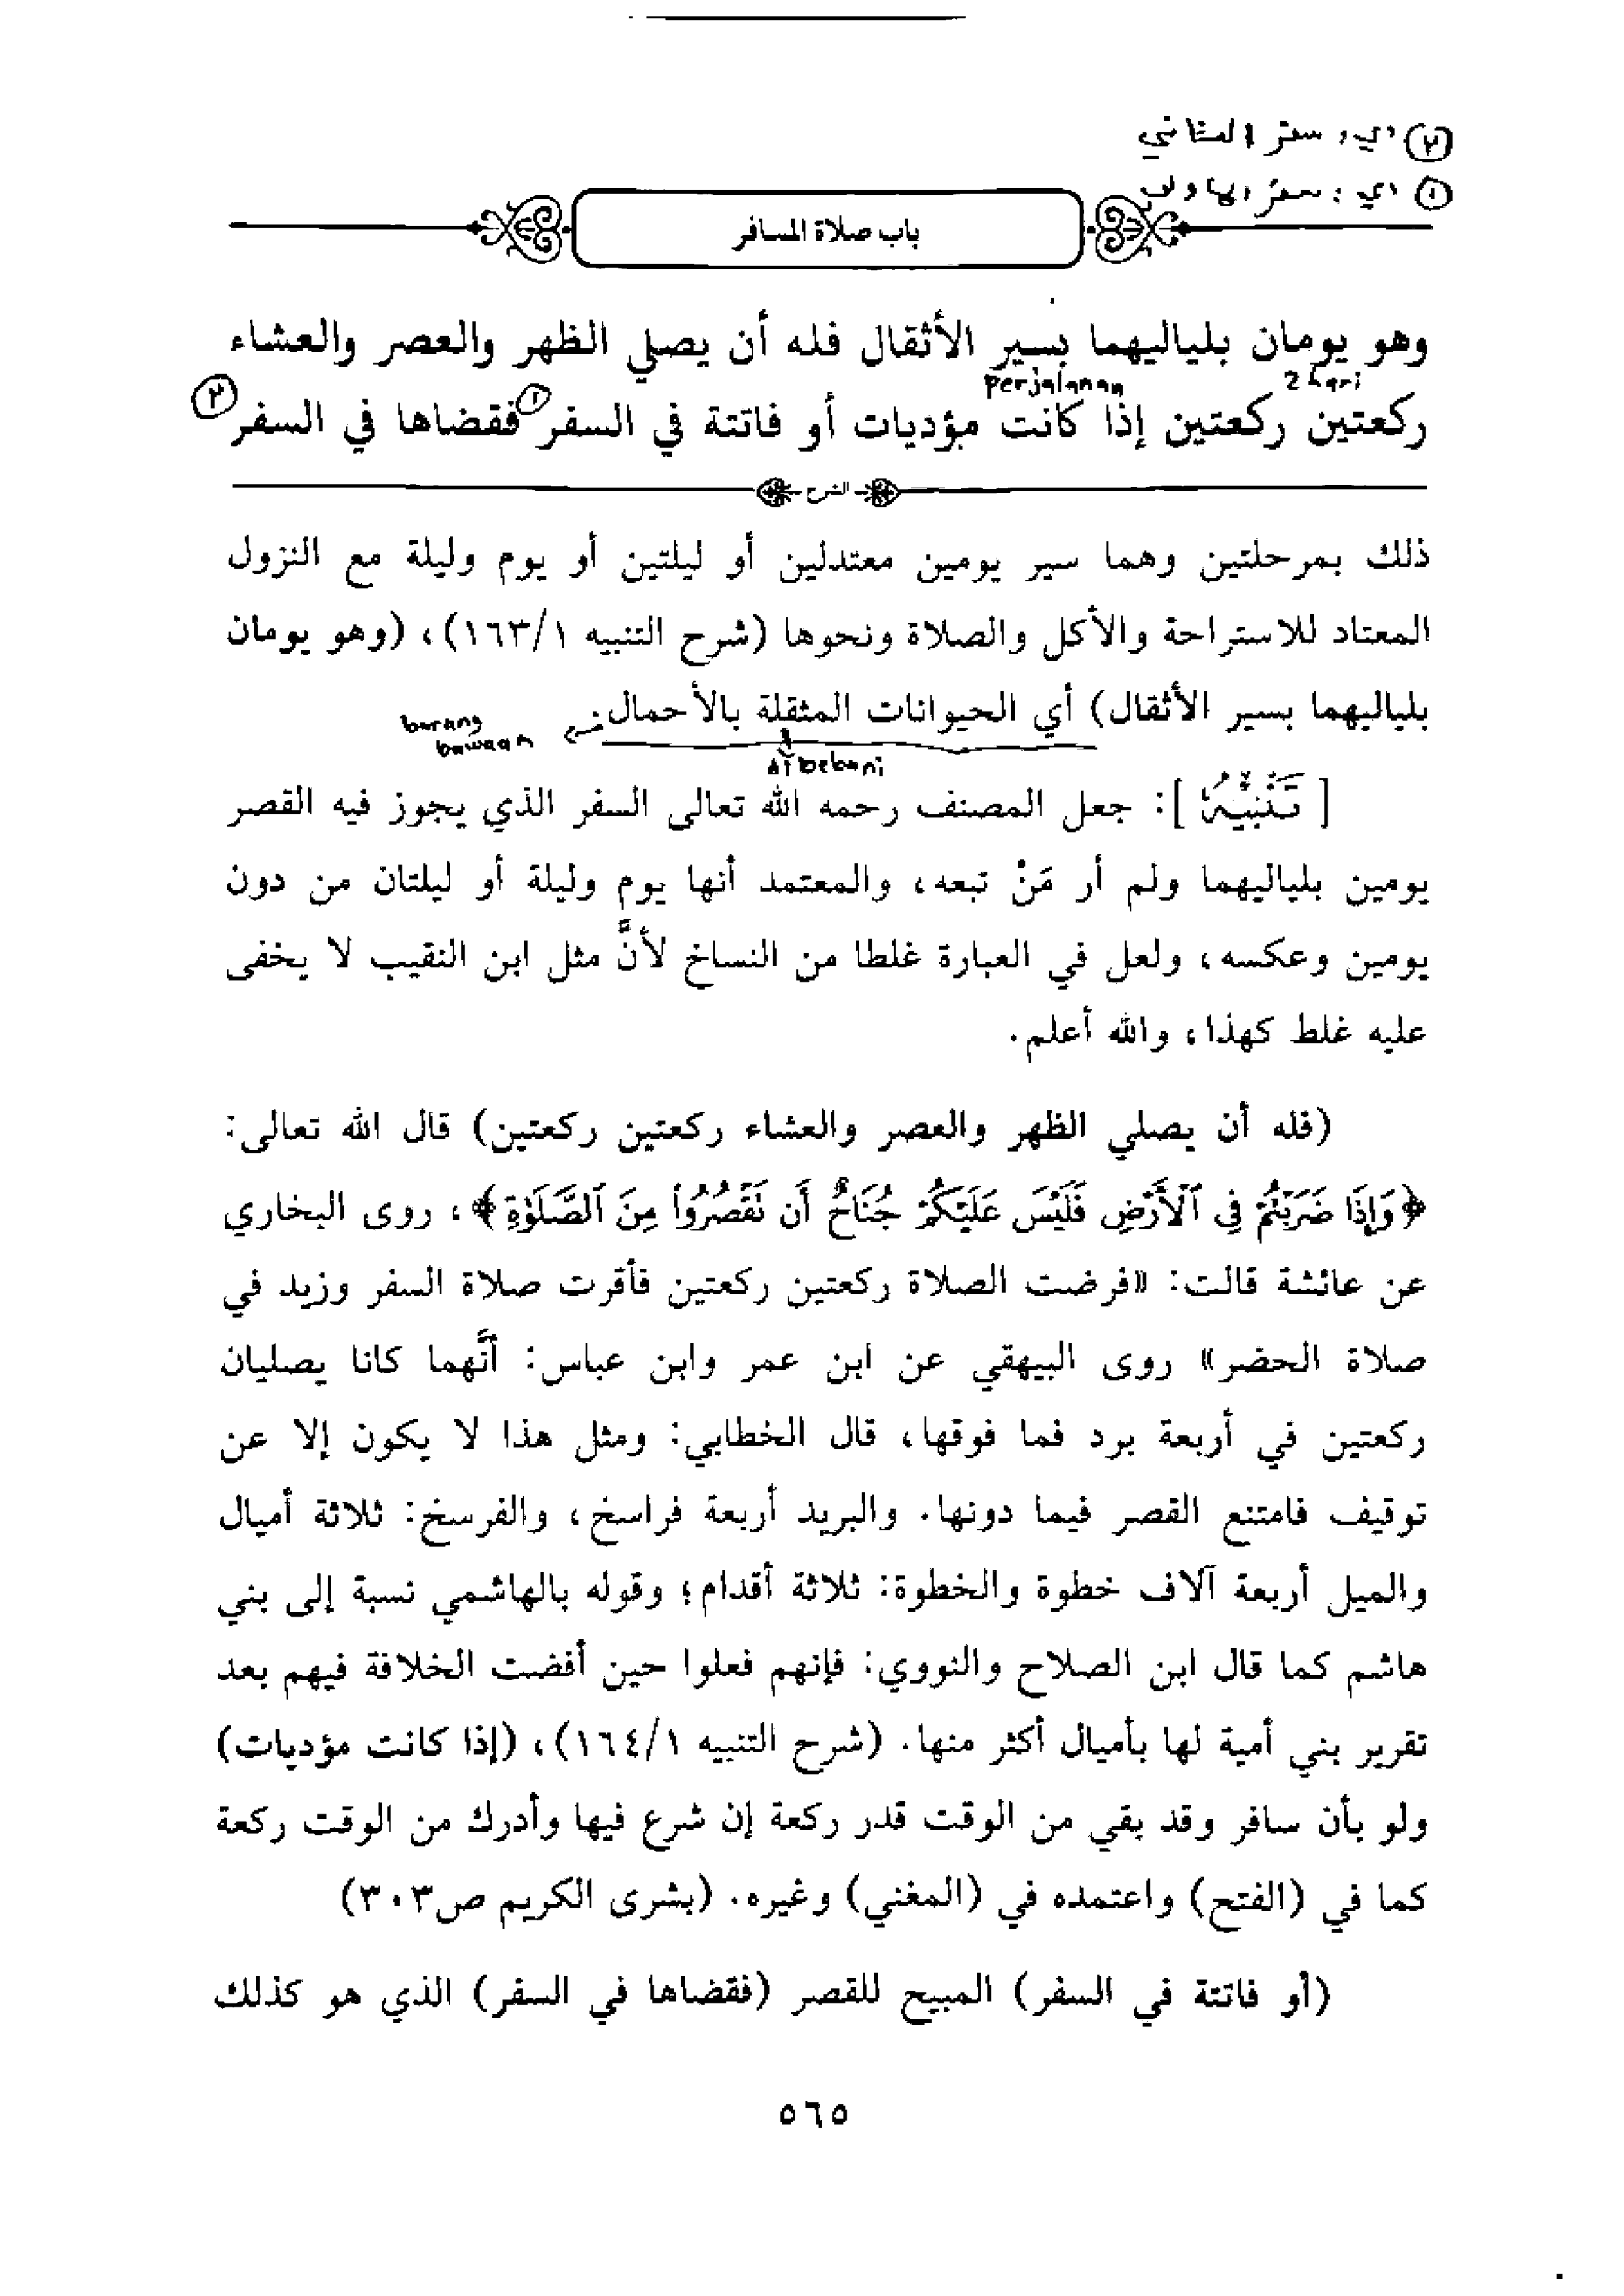 ٢ اي: سفر الثاني
١ اي: سفر الاول
باب صلاة المسافر
وهو يومان بلياليهما بسير الأثقال فله أن يصلي الظهر والعصر والعشاء
2 hari perjalanan
ركعتين ركعتين إذا كانت مؤديات أو فائتة في السفر ١ فقضاها في السفر ٢
الشرح
ذلك بمرحلتين وهما سير يومين معتدلين أو ليلتين أو يوم وليلة مع النزول
المعتاد للاستراحة والأكل والصلاة ونحوها (شرح التنبيه ١/١٦٣)، (وهو يومان
بلياليهما بسير الأثقال) أي الحيوانات المثقلة بالأحمال.
barang
bawaan
dibebani
[تَنْبِيْهٌ]: جعل المصنف رحمه الله تعالى السفر الذي يجوز فيه القصر
يومين بلياليهما ولم أر مَنْ تبعه، والمعتمد أنها يوم وليلة أو ليلتان من دون
يومين وعكسه، ولعل في العبارة غلطا من النساخ لأنَّ مثل ابن النقيب لا يخفى
عليه غلط كهذا، والله أعلم.
(فله أن يصلي الظهر والعصر والعشاء ركعتين ركعتين) قال الله تعالى:
﴿وَإِذَا ضَرَبْتُمْ فِي ٱلْأَرْضِ فَلَيْسَ عَلَيْكُمْ جُنَاحٌ أَن تَقْصُرُوا۟ مِنَ ٱلصَّلَوٰةِ﴾، روى البخاري
عن عائشة قالت: «فرضت الصلاة ركعتين ركعتين فأقرت صلاة السفر وزيد في
صلاة الحضر» روى البيهقي عن ابن عمر وابن عباس: أنَّهما كانا يصليان
ركعتين في أربعة برد فما فوقها، قال الخطابي: ومثل هذا لا يكون إلا عن
توقيف فامتنع القصر فيما دونها. والبريد أربعة فراسخ، والفرسخ: ثلاثة أميال
والميل أربعة آلاف خطوة والخطوة: ثلاثة أقدام؛ وقوله بالهاشمي نسبة إلى بني
هاشم كما قال ابن الصلاح والنووي: فإنهم فعلوا حين أفضت الخلافة فيهم بعد
تقرير بني أمية لها بأميال أكثر منها. (شرح التنبيه ١/١٦٤)، (إذا كانت مؤديات)
ولو بأن سافر وقد بقي من الوقت قدر ركعة إن شرع فيها وأدرك من الوقت ركعة
كما في (الفتح) واعتمده في (المغني) وغيره. (بشرى الكريم ص٣٠٣)
(أو فائتة في السفر) المبيح للقصر (فقضاها في السفر) الذي هو كذلك
٥٦٥